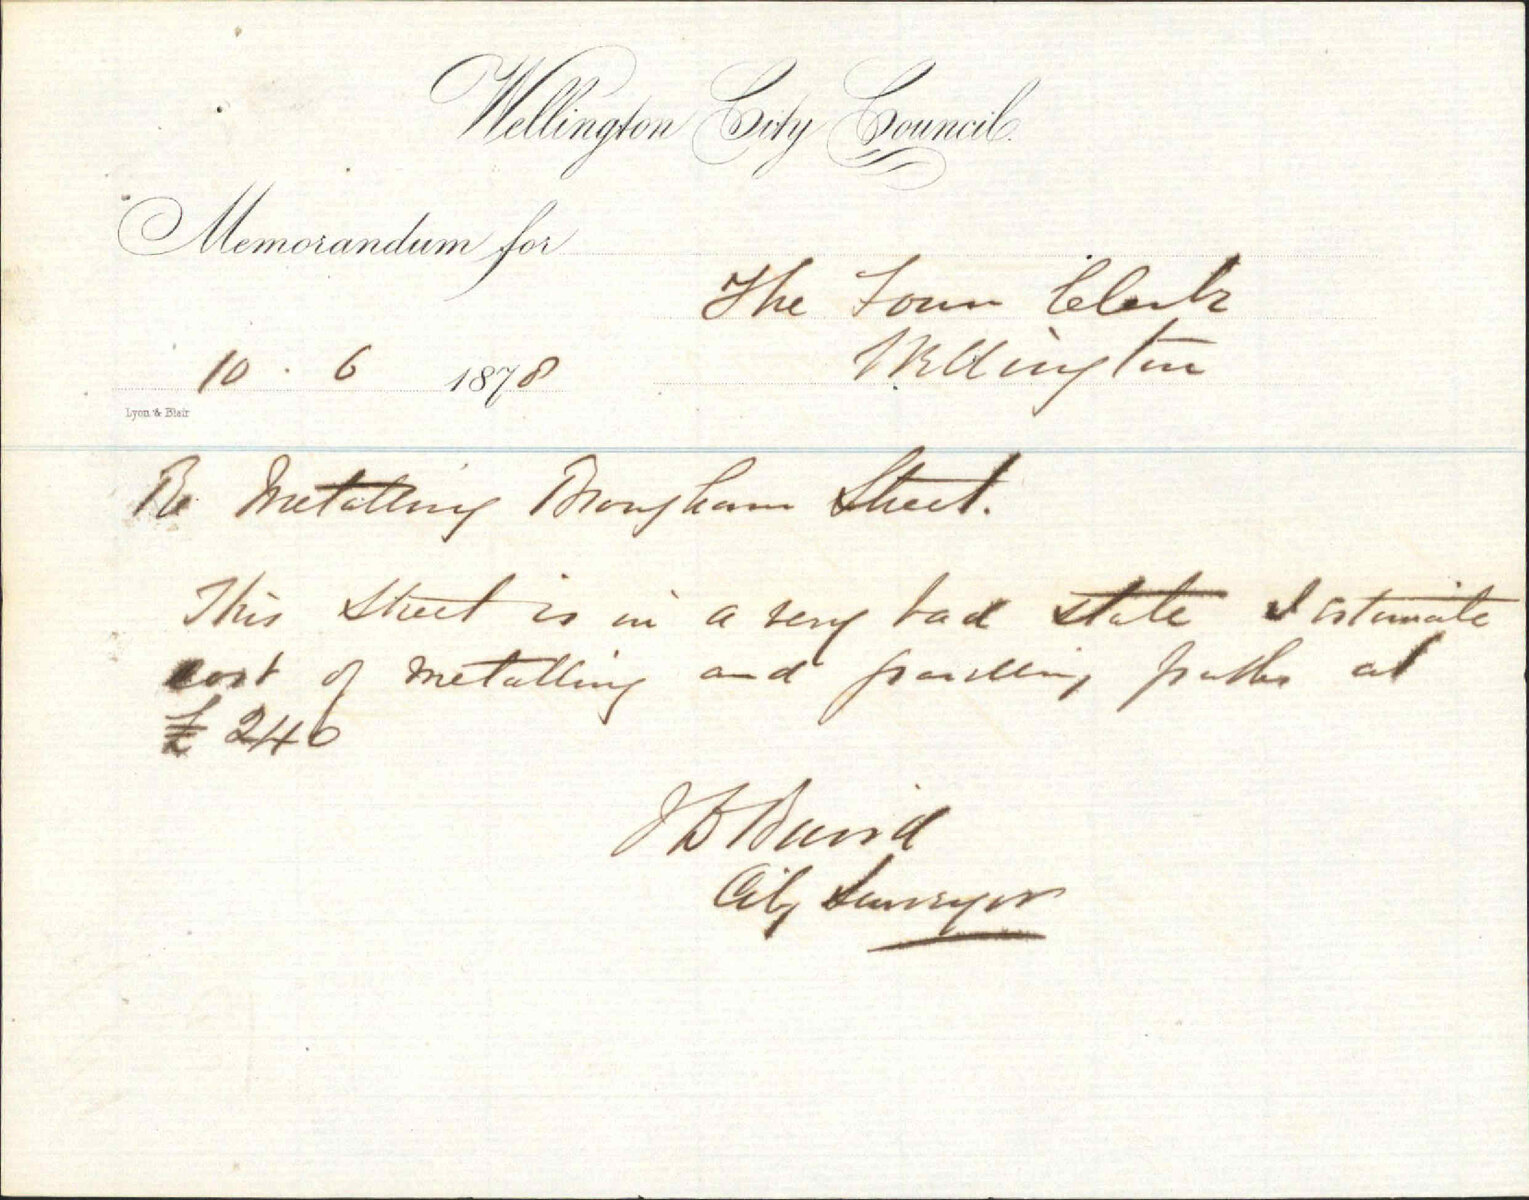 Wellington City Council.
Memorandum for
The Town Clerk
Wellington
10 . 6 1878
Lyon & Blair
Re Metalling Brougham Street.
This Street is in a very bad state I estimate
cost of metalling and gravelling paths at
£ 240
J D Baird
City Surveyor